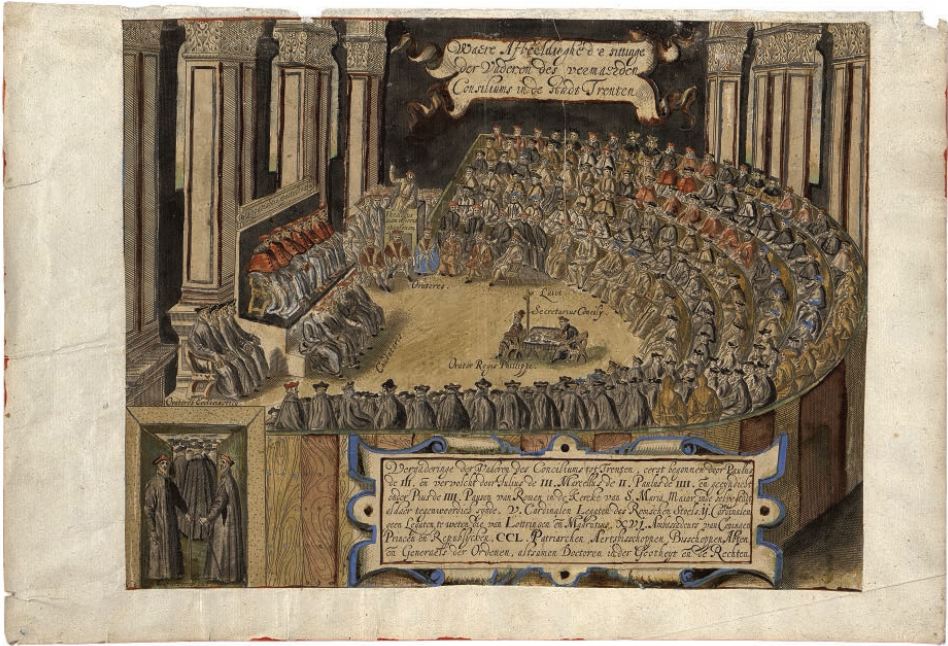 Waere Afbeeldinghe de sittinge
der Vaderen des vermaerden
Consiliums in de Stadt Trenten
Oratores
Loise
Secretarius Concily
Oratores
Orator Regis Philippi
Oratores Ecclesiastici
Vergaderinge der Vaderen des Conciliums tot Trenten, eerst begonnen door Paulus
de III. en vervolcht door Julius de III. Marcellus de II. Paulus de IIII. en geeyndicht
onder Pius de IIII. Pausen van Romen in de Kercke van S. Maria Maior
aldaer tegenwoordich synde. V. Cardinalen Legaten des Roomschen Stoels. Cardinalen
geen Legaten, te weeten die van Lottringen en Madrutius, XVI. Ambassadeurs van Coningen
Princen en Republycken, CCL. Patriarchen, Aertsbisschoppen, Bisschoppen, Abten,
en Generaels der Ordenen, altsamen Doctoren in der Godtheyt en de Rechten.